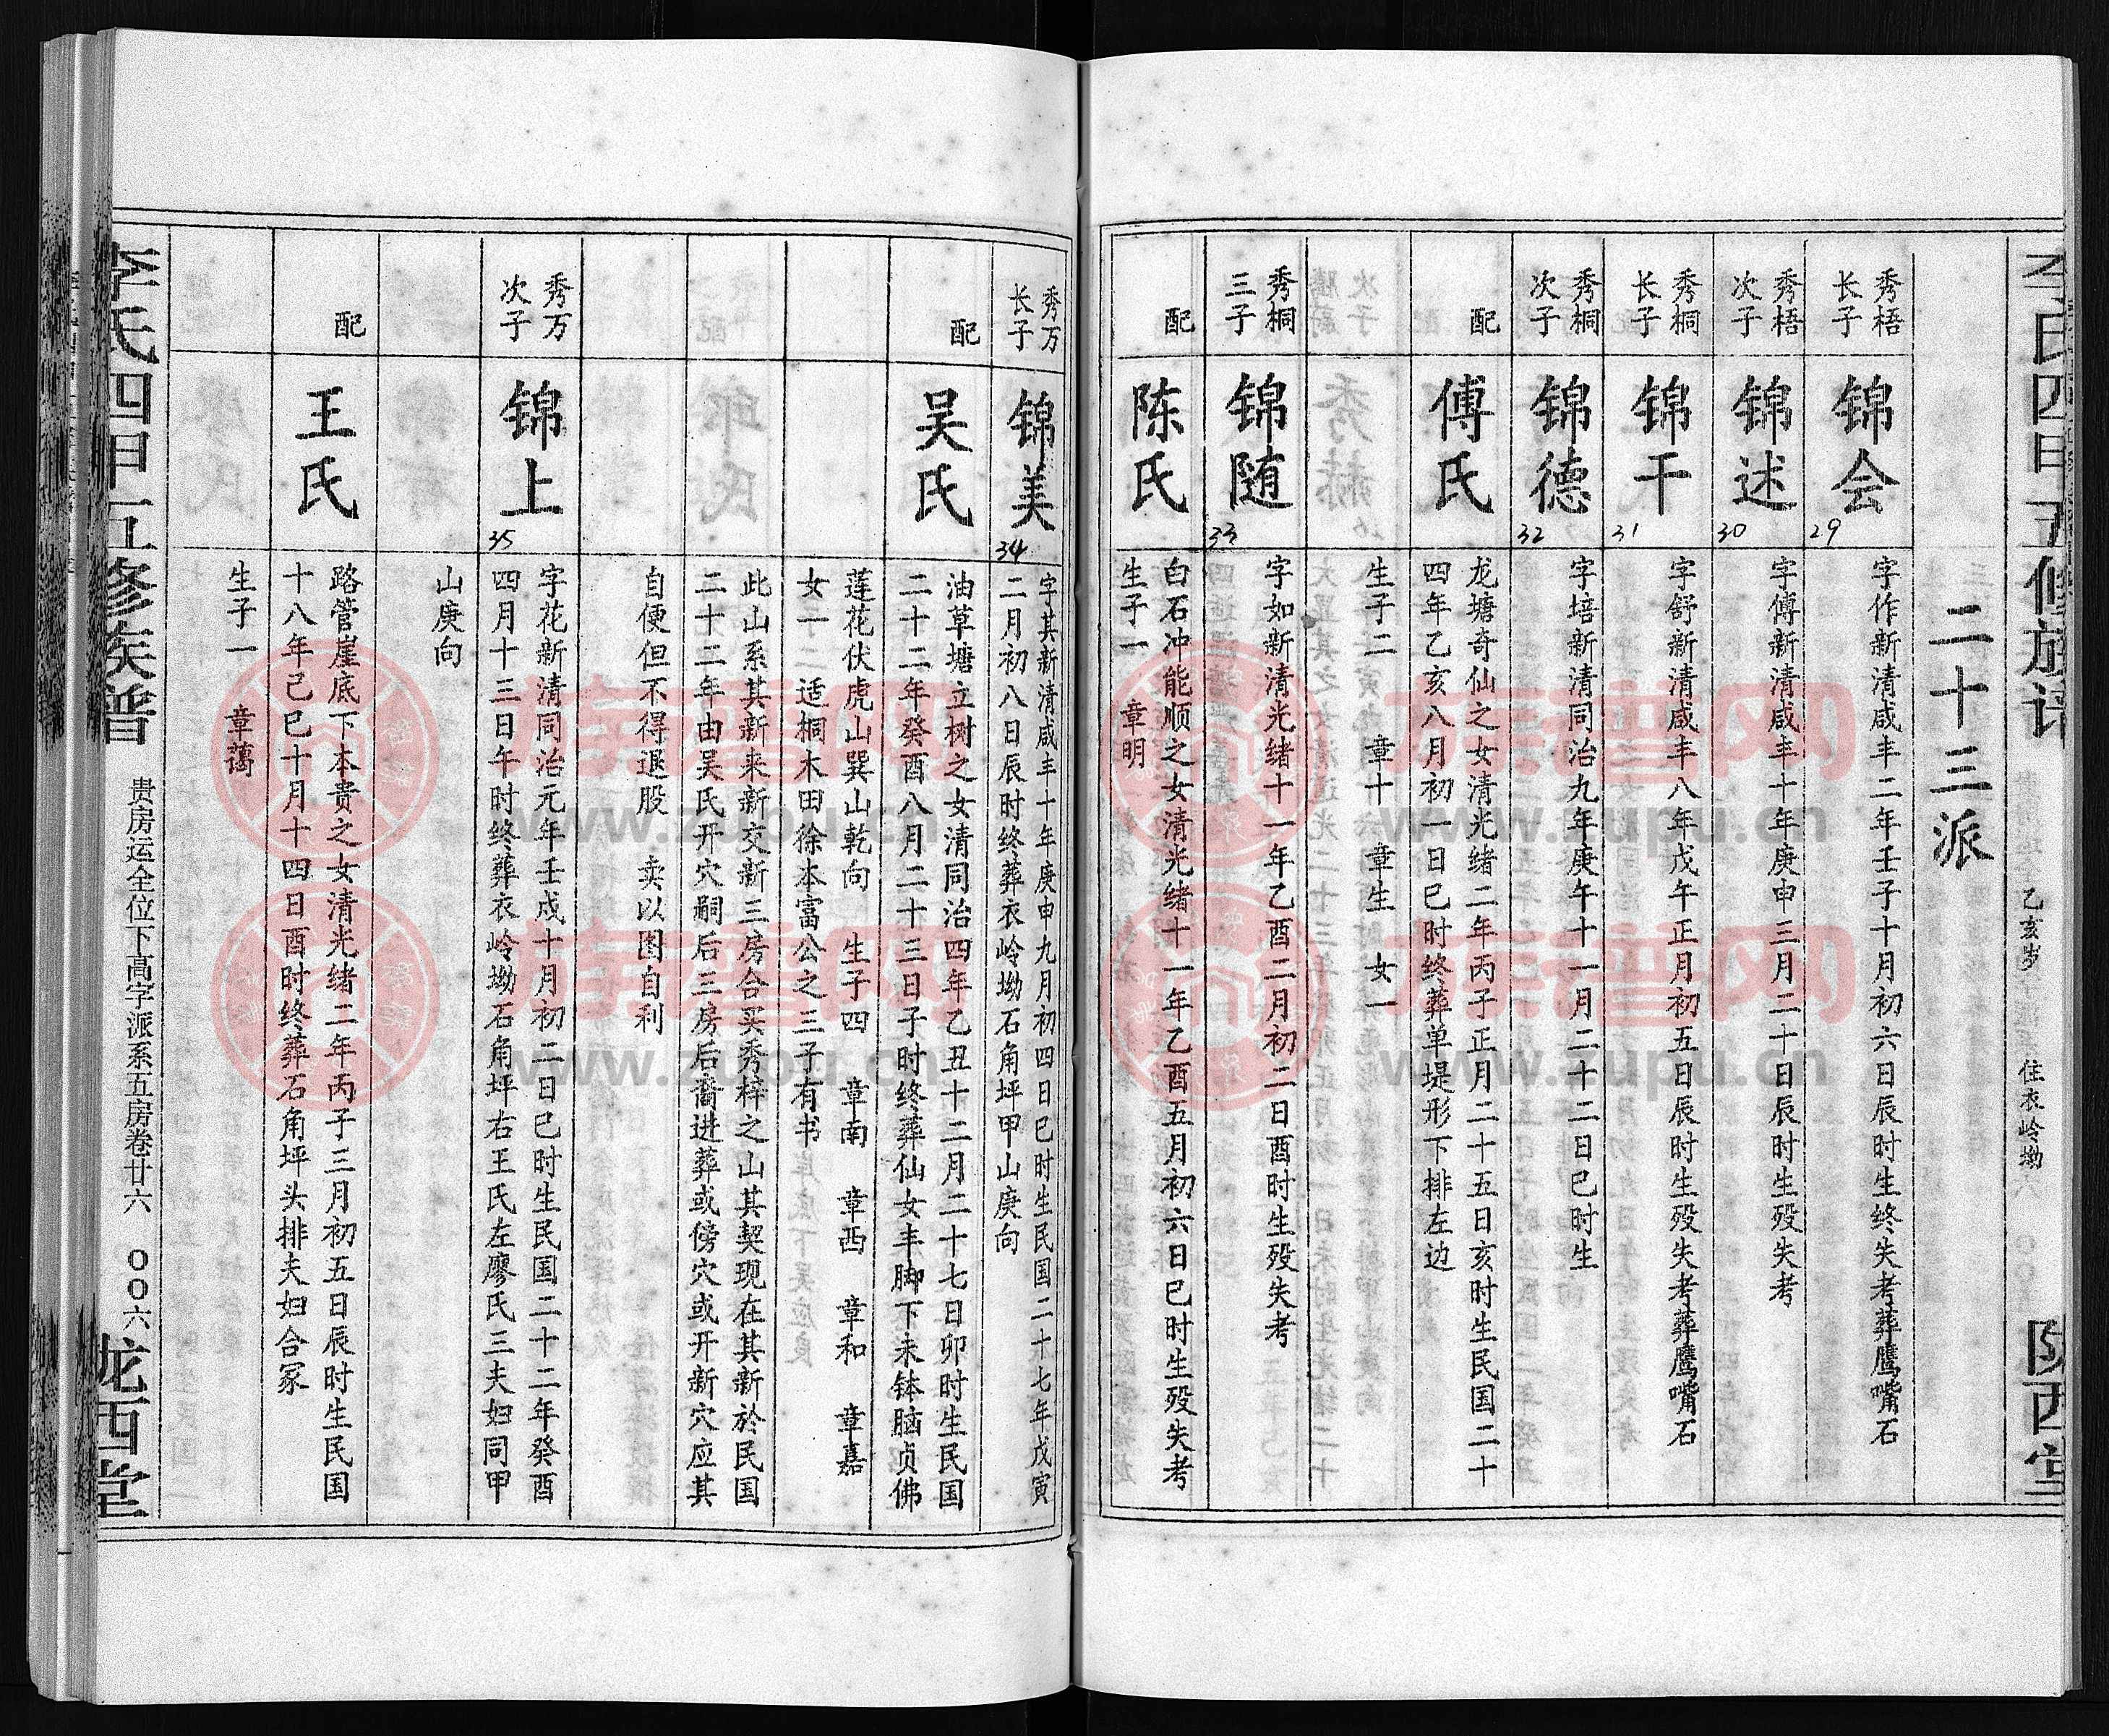 李氏四甲五修族谱
乙亥岁
住衣岭坳
陇西堂
二十三派
秀梧
长子
锦会
29
字作新清咸丰二年壬子十月初六日辰时生终失考葬鹰嘴石
秀梧
次子
锦述
30
字傅新清咸丰十年庚申三月二十日辰时生殁失考
秀桐
长子
锦干
31
字舒新清咸丰八年戊午正月初五日辰时生殁失考葬鹰嘴石
秀桐
次子
锦德
32
字培新清同治九年庚午十一月二十二日巳时生
配
傅氏
龙塘奇仙之女清光绪二年丙子正月二十五日亥时生民国二十
四年乙亥八月初一日巳时终葬单堤形下排左边
生子二 章十 章生 女一
秀桐
三子
锦随
33
字如新清光绪十一年乙酉二月初二日酉时生殁失考
配
陈氏
白石冲能顺之女清光绪十一年乙酉五月初六日巳时生殁失考
生子一 章明
秀万
长子
锦美
34
字其新清咸丰十年庚申九月初四日巳时生民国二十七年戊寅
二月初八日辰时终葬衣岭坳石角坪甲山庚向
配
吴氏
油草塘立树之女清同治四年乙丑十二月二十七日卯时生民国
二十二年癸酉八月二十三日子时终葬仙女丰脚下未钵脑贞佛
莲花伏虎山巽山乾向 生子四 章南 章西 章和 章嘉
女一 适桐木田徐本富公之三子有书
此山系其新来新交新三房合买秀梓之山其契现在其新於民国
二十二年由吴氏开穴嗣后三房后裔进葬或傍穴或开新穴应其
自便但不得退股 卖以图自利
秀万
次子
锦上
35
字花新清同治元年壬戌十月初二日巳时生民国二十二年癸酉
四月十三日午时终葬衣岭坳石角坪右王氏左廖氏三夫妇同甲
山庚向
配
王氏
路管崖底下本贵之女清光绪二年丙子三月初五日辰时生民国
十八年己巳十月十四日酉时终葬石角坪头排夫妇合冢
生子一 章蔼
李氏四甲五修族谱
贵房运全位下高字派系五房卷廿六
〇〇六
陇西堂
族谱网
www.zupu.cn
族谱网
www.zupu.cn
族谱网
www.zupu.cn
族谱网
www.zupu.cn